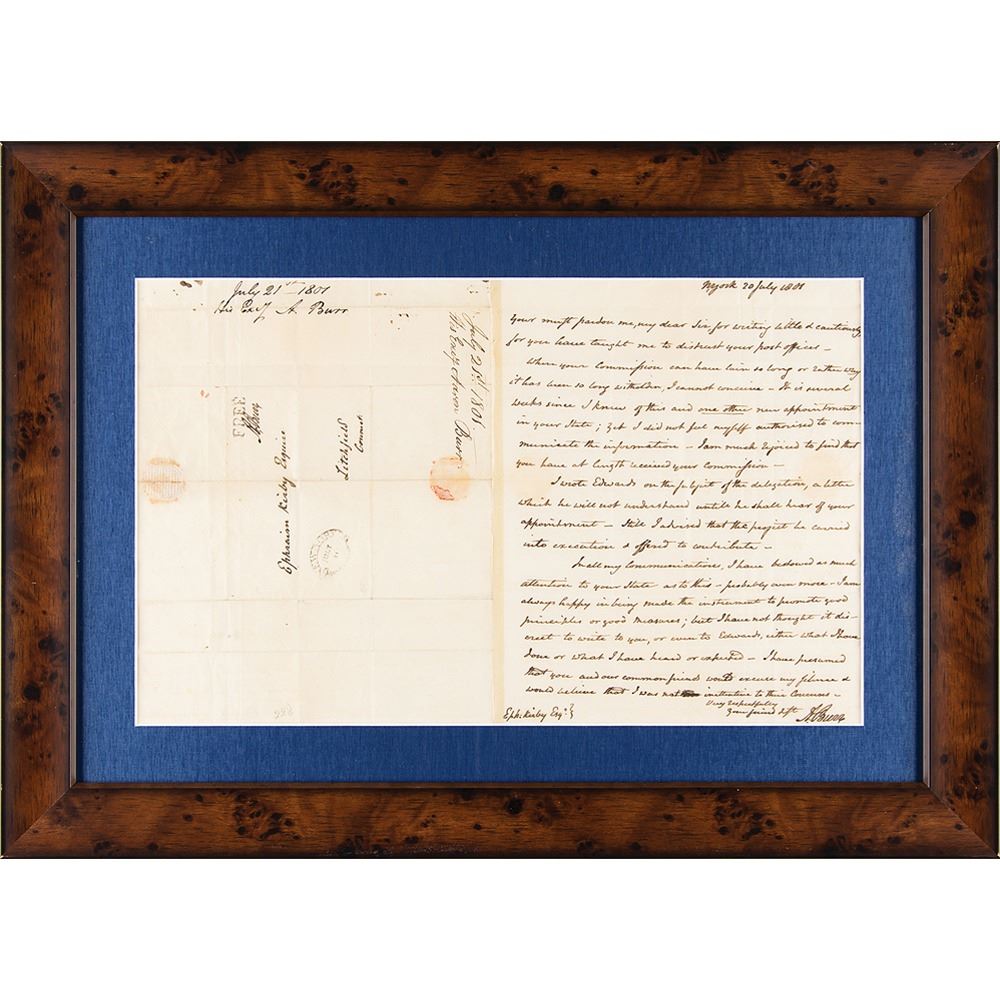 July 21st 1801
His Excy A. Burr
July 21st 1801
His Excy Aaron Burr
FREE
A Burr
Ephraim Kirby Esquire
Litchfield
Connect
NYork 20 July 1801
Your must pardon me, my dear Sir for writing little & cautiously
for you have taught me to distrust your post offices —
Where your Commission can have lain so long or rather why
it has been so long witholden, I cannot conceive — It is several
weeks since I knew of this and one other new appointment
in your State; yet I did not feel myself authorised to com-
municate the information — I am much rejoiced to find that
you have at length received your commission —
I wrote Edwards on the subject of the delegation, a letter
which he will not understand until he shall hear of your
appointment — Still I advised that the project be carried
into execution & offered to contribute —
In all my Communications, I have bestowed as much
attention to your State as to this — probably even more — I am
always happy in being made the instrument to promote good
principles or good measures; but I have not thought it dis-
creet to write to you, or even to Edwards, either what I have
done or what I have heard or expected — I have presumed
that you and our common friends would excuse my silence &
would believe that I was not inattentive to their Concerns —
Very respectfully
Your friend & st
A Burr
Eph: Kirby Esqr